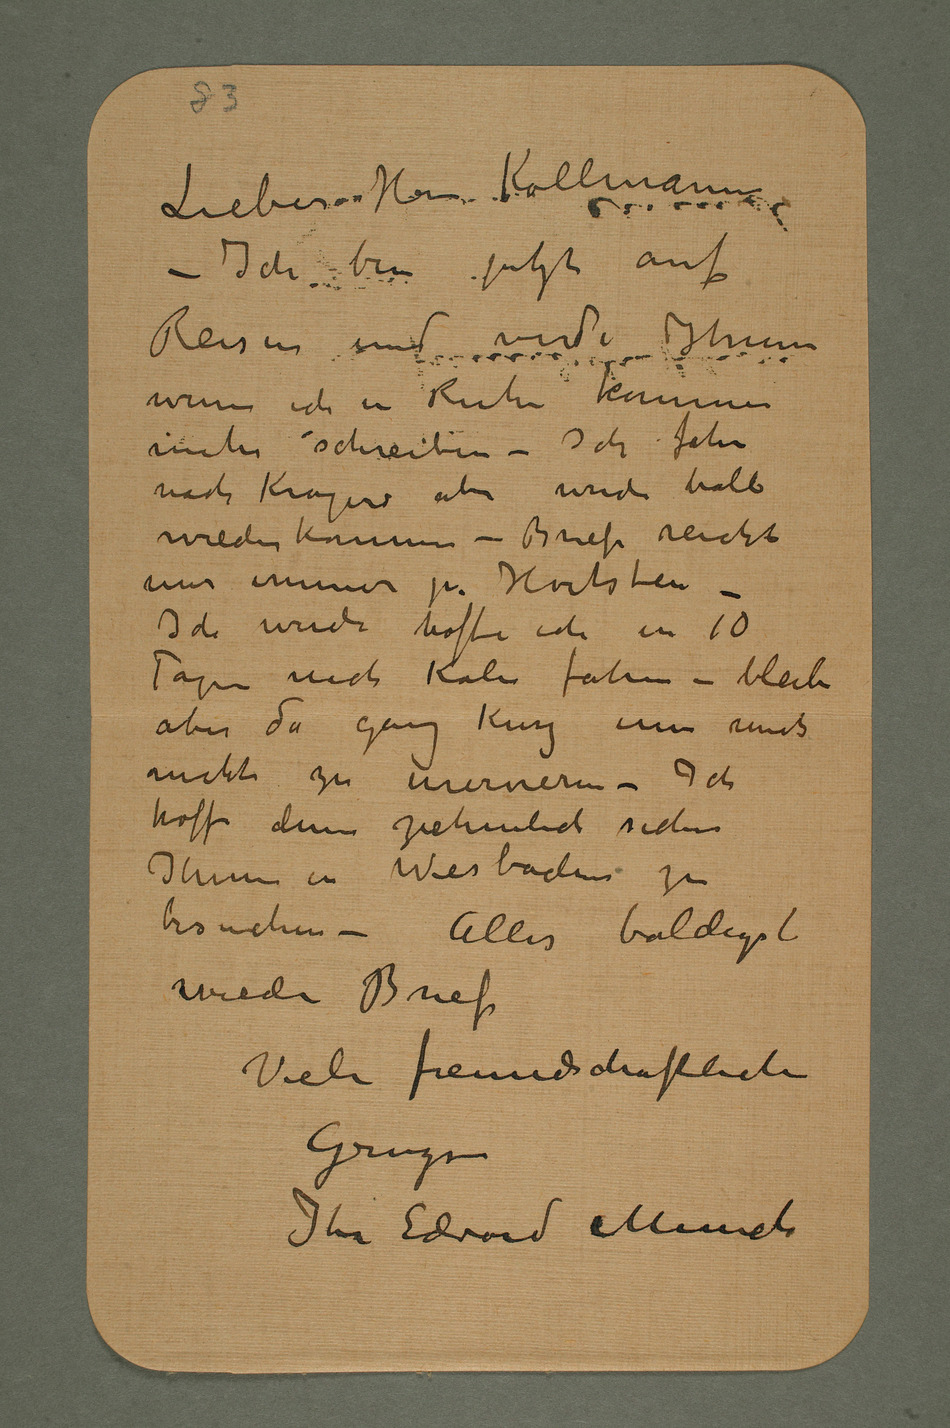 83
Lieber Herr Kollmann
– Ich bin jetzt auf
Reisen und werde Ihnen
wenn ich in Ruhe komme
mehr schreiben – Ich fahre
nach Kragerø aber werde bald
wiederkommen – Briefe reicht
mir immer pr. Hvitsten –
Ich werde hoffe ich in 10
Tagen nach Köln fahren – bleibe
aber da ganz kurz um mich
nicht zu enervieren – Ich
hoffe dann ziehmlich sicher
Ihnen in Wiesbaden zu
besuchen – Alles baldigst
wieder Brief
Viele freundschaftliche
Grüsse
Ihr Edvard Munch